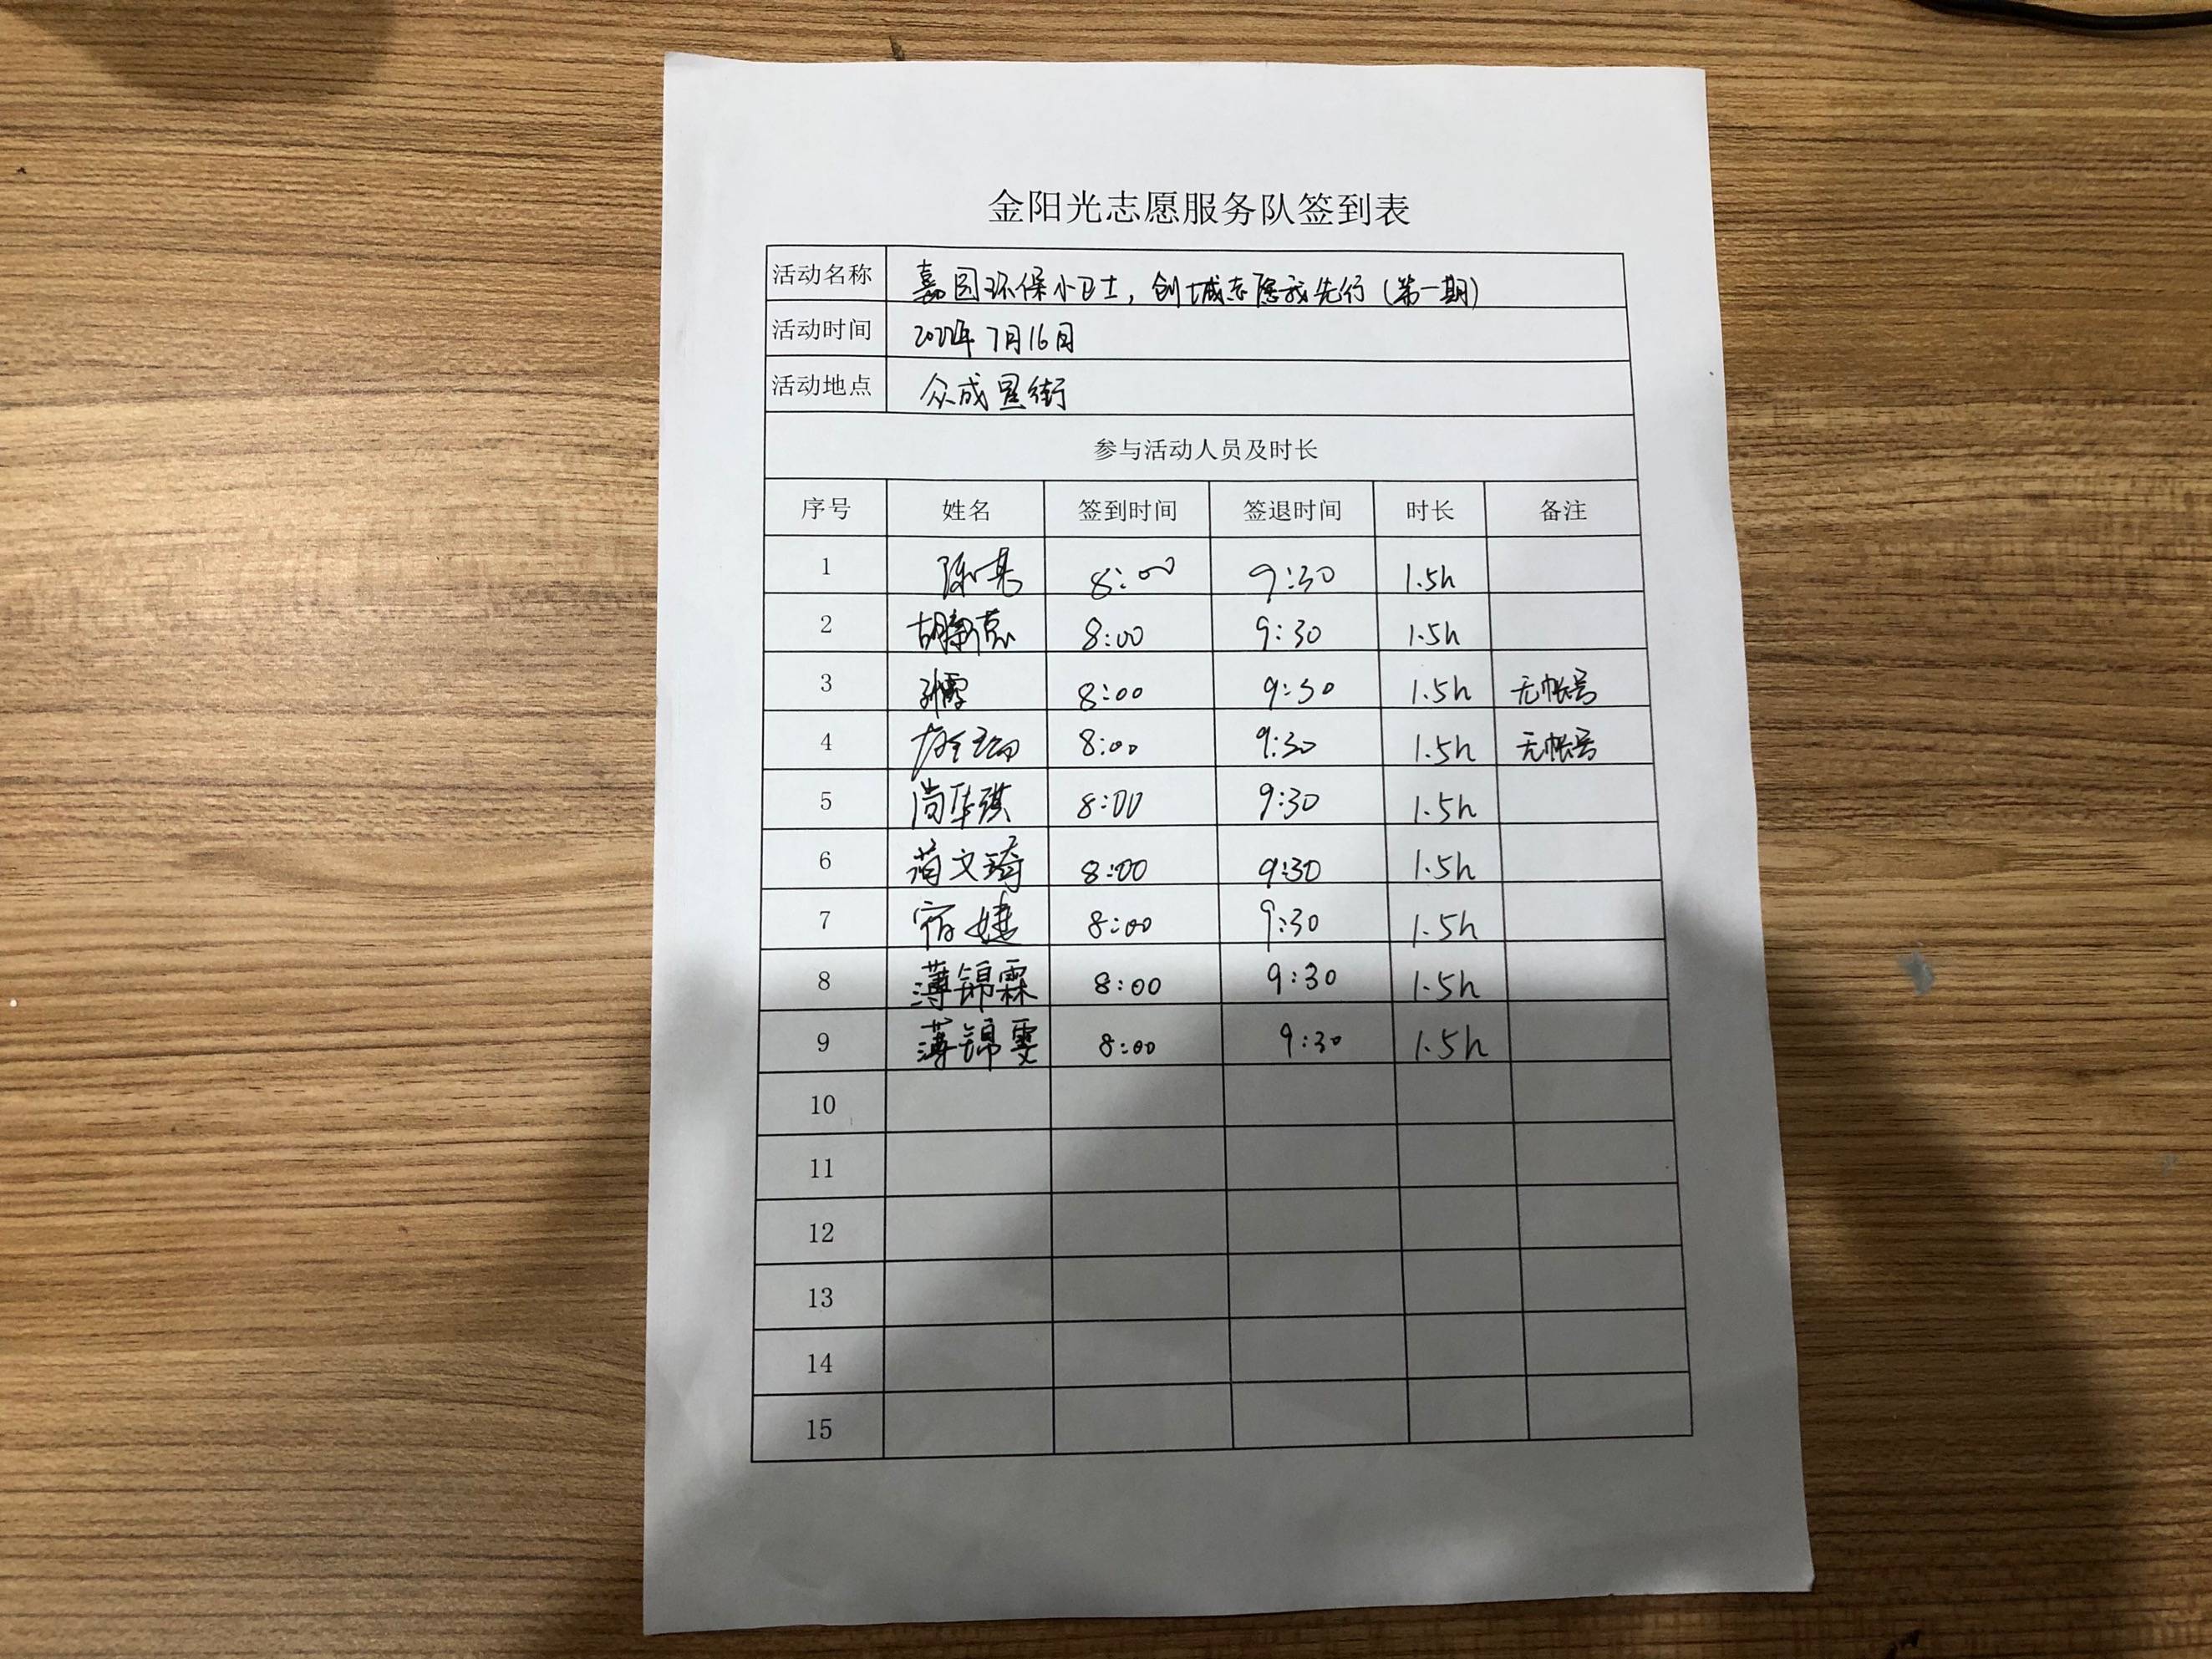 金阳光志愿服务队签到表
活动名称 嘉园环保小卫士，创城志愿我先行（第一期）
活动时间 2022年7月16日
活动地点 众成里街
参与活动人员及时长
序号 姓名 签到时间 签退时间 时长 备注
1 8:00 9:30 1.5h
2 8:00 9:30 1.5h
3 8:00 9:30 1.5h 无帐号
4 8:00 9:30 1.5h 无帐号
5 尚华琪 8:00 9:30 1.5h
6 文琦 8:00 9:30 1.5h
7 宿婕 8:00 9:30 1.5h
8 薄锦霖 8:00 9:30 1.5h
9 薄锦雯 8:00 9:30 1.5h
10
11
12
13
14
15